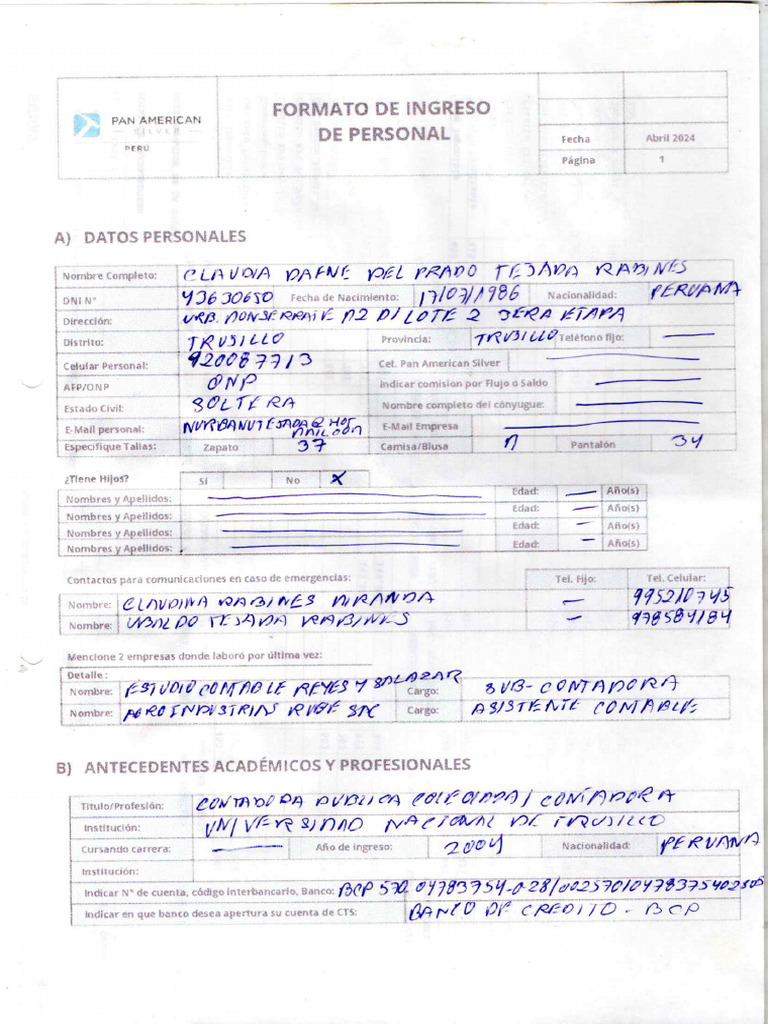 PAN AMERICAN
SILVER
PERÚ
FORMATO DE INGRESO
DE PERSONAL
Fecha Abril 2024
Página 1
A) DATOS PERSONALES
Nombre Completo: CLAUDIA DAFNE DEL PRADO TEJADA RABINES
DNI N° 43630650 Fecha de Nacimiento: 17/07/1986 Nacionalidad: PERUANA
Dirección: URB. MONSERRATE MZ D1 LOTE 2 3ERA ETAPA
Distrito: TRUJILLO Provincia: TRUJILLO Teléfono fijo: —
Celular Personal: 920087713 Cel. Pan American Silver —
AFP/ONP ONP Indicar comision por Flujo o Saldo —
Estado Civil: SOLTERA Nombre completo del cónyugue: —
E-Mail personal: NURBANUTEJADA@HOT
MAIL.COM E-Mail Empresa —
Especifique Tallas: Zapato 37 Camisa/Blusa M Pantalón 34
¿Tiene Hijos? Sí No X
Nombres y Apellidos: — Edad: — Año(s)
Nombres y Apellidos: — Edad: — Año(s)
Nombres y Apellidos: — Edad: — Año(s)
Nombres y Apellidos: — Edad: — Año(s)
Contactos para comunicaciones en caso de emergencias: Tel. Fijo: Tel. Celular:
Nombre: CLAUDINA RABINES MIRANDA — 995210745
Nombre: UBALDO TEJADA RABINES — 978584184
Mencione 2 empresas donde laboró por última vez:
Detalle :
Nombre: ESTUDIO CONTABLE REYES Y SALAZAR Cargo: SUB-CONTADORA
Nombre: AGROINDUSTRIAS RUBE SAC Cargo: ASISTENTE CONTABLE
B) ANTECEDENTES ACADÉMICOS Y PROFESIONALES
Titulo/Profesión: CONTADORA PUBLICA COLEGIADA / CONTADORA
Institución: UNIVERSIDAD NACIONAL DE TRUJILLO
Cursando carrera: — Año de ingreso: 2004 Nacionalidad: PERUANA
Institución:
Indicar N° de cuenta, código interbancario, Banco: BCP 570.04783754-0-28/00257010478375402805
Indicar en que banco desea apertura su cuenta de CTS: BANCO DE CREDITO - BCP